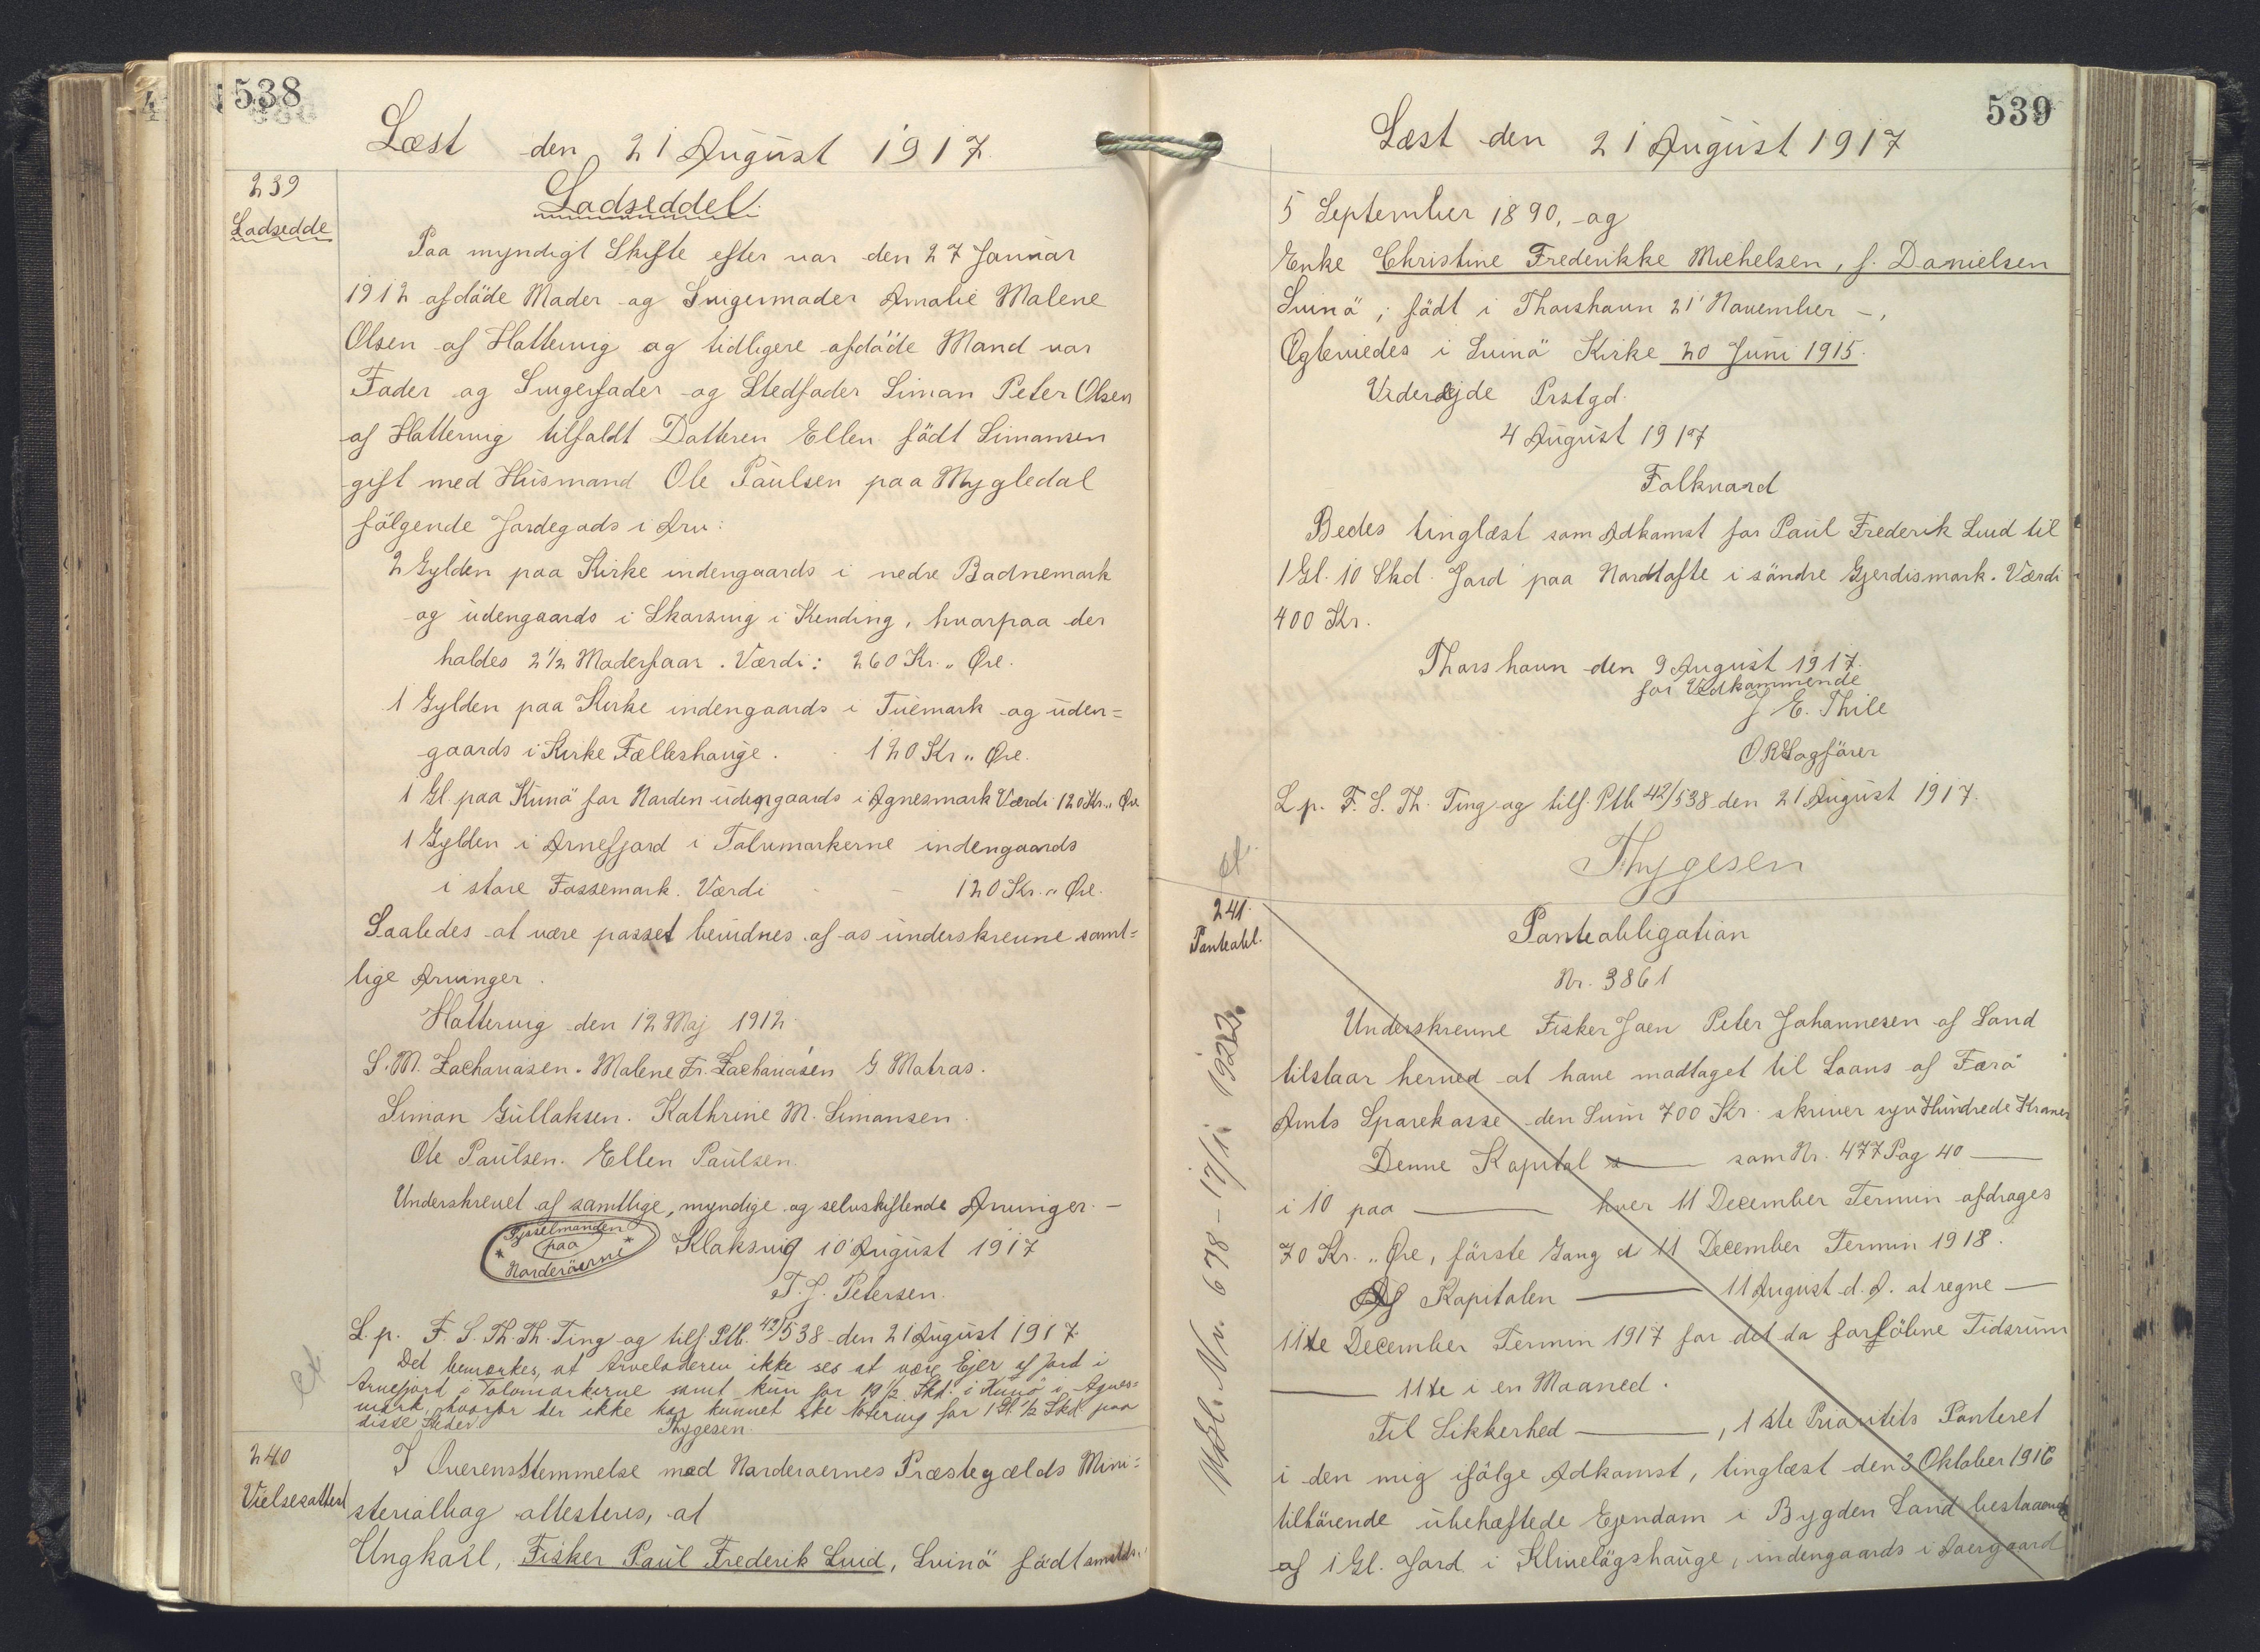 538
Læst den 21 August 1917.
239
Lodsedde
Lodseddel.
Paa myndigt Skifte efter vor den 27 Januar
1912 afdöde Moder og Svigermoder Amalie Malene
Olsen af Hattervig og tidligere afdöde Mand vor
Fader og Svigerfader og Stedfader Simon Peter Olsen
af Hattervig tilfaldt Datteren Ellen født Simonsen
gift med Husmand Ole Paulsen paa Mygledal
følgende Jordegods i Arv:
2 Gylden paa Kirke indengaards i nedre Badnemark
og udengaards i Skarsvig i Kending, hvorpaa der
holdes 2 1/2 Moderfaar. Værdi: 260 Kr. „ Øre.
1 Gylden paa Kirke indengaards i Tuemark og uden=
gaards i Kirke Fælleshauge. 120 Kr „ Øre.
1 Gl. paa Kunö for Norden udengaards i Agnesmark Værdi 120 Kr. „ Øre
1 Gylden i Arnefjord i Tolvmarkerne indengaards
i store Fossemark. Værdi - - 120 Kr. „ Øre.
Saaledes at være passet bevidnes af os underskrevne samt=
lige Arvinger.
Hattervig den 12 Maj 1912.
S. M. Zachariasen. Malene Fr. Zachariasen G. Matras.
Simon Gullaksen. Kathrine M. Simonsen.
Ole Paulsen. Ellen Paulsen.
Underskrevet af samtlige, myndige og selvskiftende Arvinger. -
Sysselmanden
paa
Norderöerne
Klaksvig 10 August 1917
T. J. Petersen.
L. p. F. S. Th. Th. Ting og tilf. Ptb. 42/538 den 21 August 1917.
Det bemærkes, at Arveladeren ikke ses at være Ejer af Jord i
Arnefjord i Tolvmarkerne samt kun for 19 1/2 Skd. i Kunö i Agnes=
mark, hvorfor der ikke har kunnet ske Notering for 1 Gl. 1/2 Skd. paa
disse Steder.
Thygesen.
240
Vielsesattest
I Overensstemmelse med Norderoernes Præstegælds Mini=
sterialbog attesteres, at
Ungkarl, Fisker Paul Frederik Lvid, Svinö født smstds.
539
Læst den 21 August 1917
5 September 1890, og
Enke Christine Frederikke Michelsen, f. Danielsen
Svinö, født i Thorshavn 21 November -,
Ægteviedes i Svinö Kirke 20 Juni 1915.
Viderejde Prstgd.
4 August 1917
Folkvard
Bedes tinglæst som Adkomst for Paul Frederik Lvid til
1 Gl. 10 Skd. Jord paa Nordtofte i söndre Gjerdismark. Værdi
400 Kr.
Thorshavn den 9 August 1917.
for Vedkommende
J E. Thile
ORSagförer
L p. F. S. Th. Ting og tilf. Ptb 42/538 den 21 August 1917.
Thygesen
241.
Panteobl.
Panteobligation
Nr. 3861
Underskrevne Fisker Joen Peter Johannesen af Sand
tilstaar herved at have modtaget til Laans af Færö
Amts Sparekasse den Sum 700 Kr. skriver syv Hundrede Kroner
Denne Kapital ——— som Nr. 477 Pag 40 ———
i 10 paa ——— hver 11 December Termin afdrages
70 Kr. „ Øre, förste Gang d 11 December Termin 1918.
Af Kapitalen ——— 11 August d. A. at regne —
11te December Termin 1917 for det da forlöbne Tidsrum
——— 11te i en Maaned.
Til Sikkerhed ———, 1ste Prioritets Panteret
i den mig ifölge Adkomst, tinglæst den 3 Oktober 1916
tilhörende ubehæftede Ejendom i Bygden Sand bestaaende
af 1 Gl. Jord i Klivelögshauge, indengaards i Aaergaard
Udsl. Nr. 678 - 17/1. 1922.